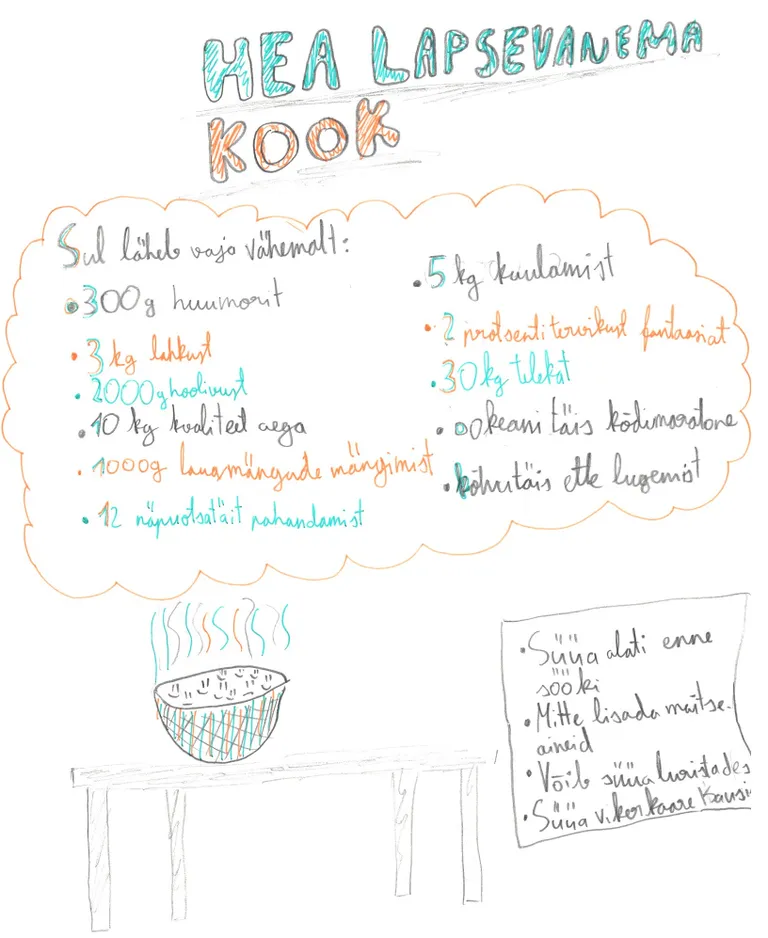 HEA LAPSEVANEMA
KOOK
Sul läheb vaja vähemalt:
• 300g huumorit
• 3 kg lahkust
• 2000g hoolivust
• 10 kg kvaliteet aega
• 1000g lauamängude mängimist
• 12 näpuotsatäit pahandamist
• 5 kg kuulamist
• 2 protsenti tervikust fantaasiat
• 30kg telekat
• ookeani täis kõdimaratone
• kõhutäis ette lugemist
• Süüa alati enne
sööki
• Mitte lisada maitse-
aineid
• Võib süüa luristades
• Süüa vikerkaare